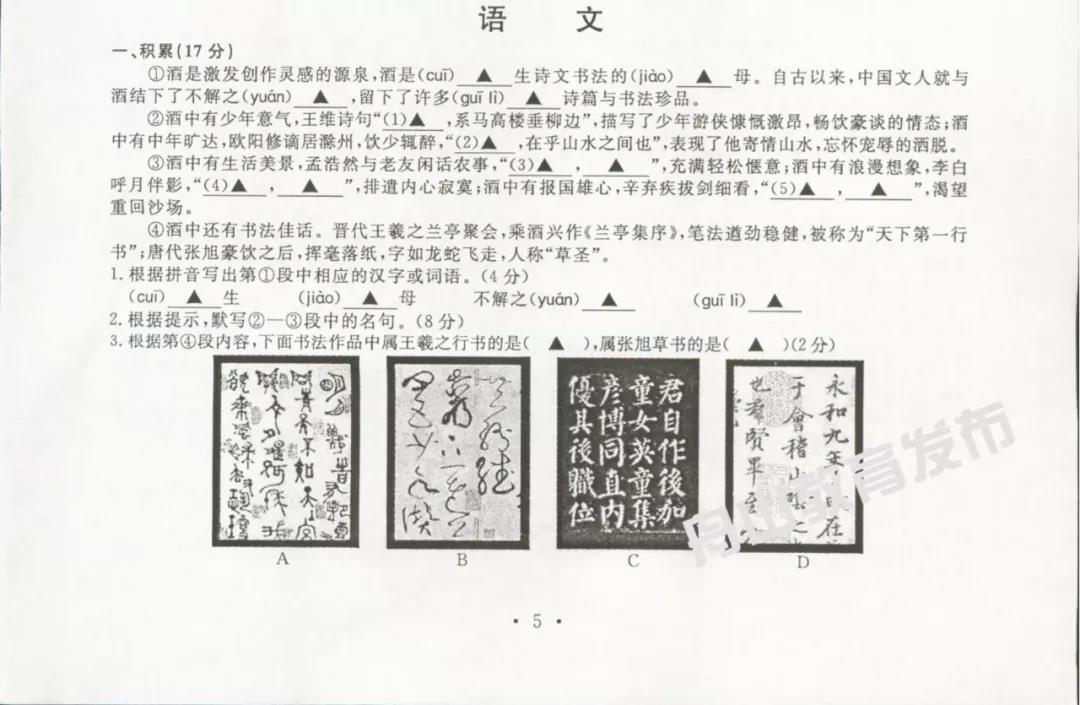 语 文
一、积累(17分)
①酒是激发创作灵感的源泉,酒是(cuī) ▲ 生诗文书法的(jiào) ▲ 母。自古以来,中国文人就与
酒结下了不解之(yuán) ▲ ,留下了许多(guī lì) ▲ 诗篇与书法珍品。
②酒中有少年意气,王维诗句“(1)▲ ,系马高楼垂柳边”,描写了少年游侠慷慨激昂,畅饮豪谈的情态;酒
中有中年旷达,欧阳修谪居滁州,饮少辄醉,“(2)▲ ,在乎山水之间也”,表现了他寄情山水,忘怀宠辱的洒脱。
③酒中有生活美景,孟浩然与老友闲话农事,“(3)▲ , ▲ ”,充满轻松惬意;酒中有浪漫想象,李白
呼月伴影,“(4)▲ , ▲ ”,排遣内心寂寞;酒中有报国雄心,辛弃疾拔剑细看,“(5)▲ , ▲ ”,渴望
重回沙场。
④酒中还有书法佳话。晋代王羲之兰亭聚会,乘酒兴作《兰亭集序》,笔法遒劲稳健,被称为“天下第一行
书”;唐代张旭豪饮之后,挥毫落纸,字如龙蛇飞走,人称“草圣”。
1.根据拼音写出第①段中相应的汉字或词语。(4分)
(cuī) ▲ 生 (jiào) ▲ 母 不解之(yuán) ▲ (guī lì) ▲
2.根据提示,默写②—③段中的名句。(8分)
3.根据第④段内容,下面书法作品中属王羲之行书的是( ▲ ),属张旭草书的是( ▲ )(2分)
君自作後加
童女英童集
彦博同直内
優其後職位
永和九年
于會稽山
也羣賢畢至
A B C D
舟山教育发布
· 5 ·